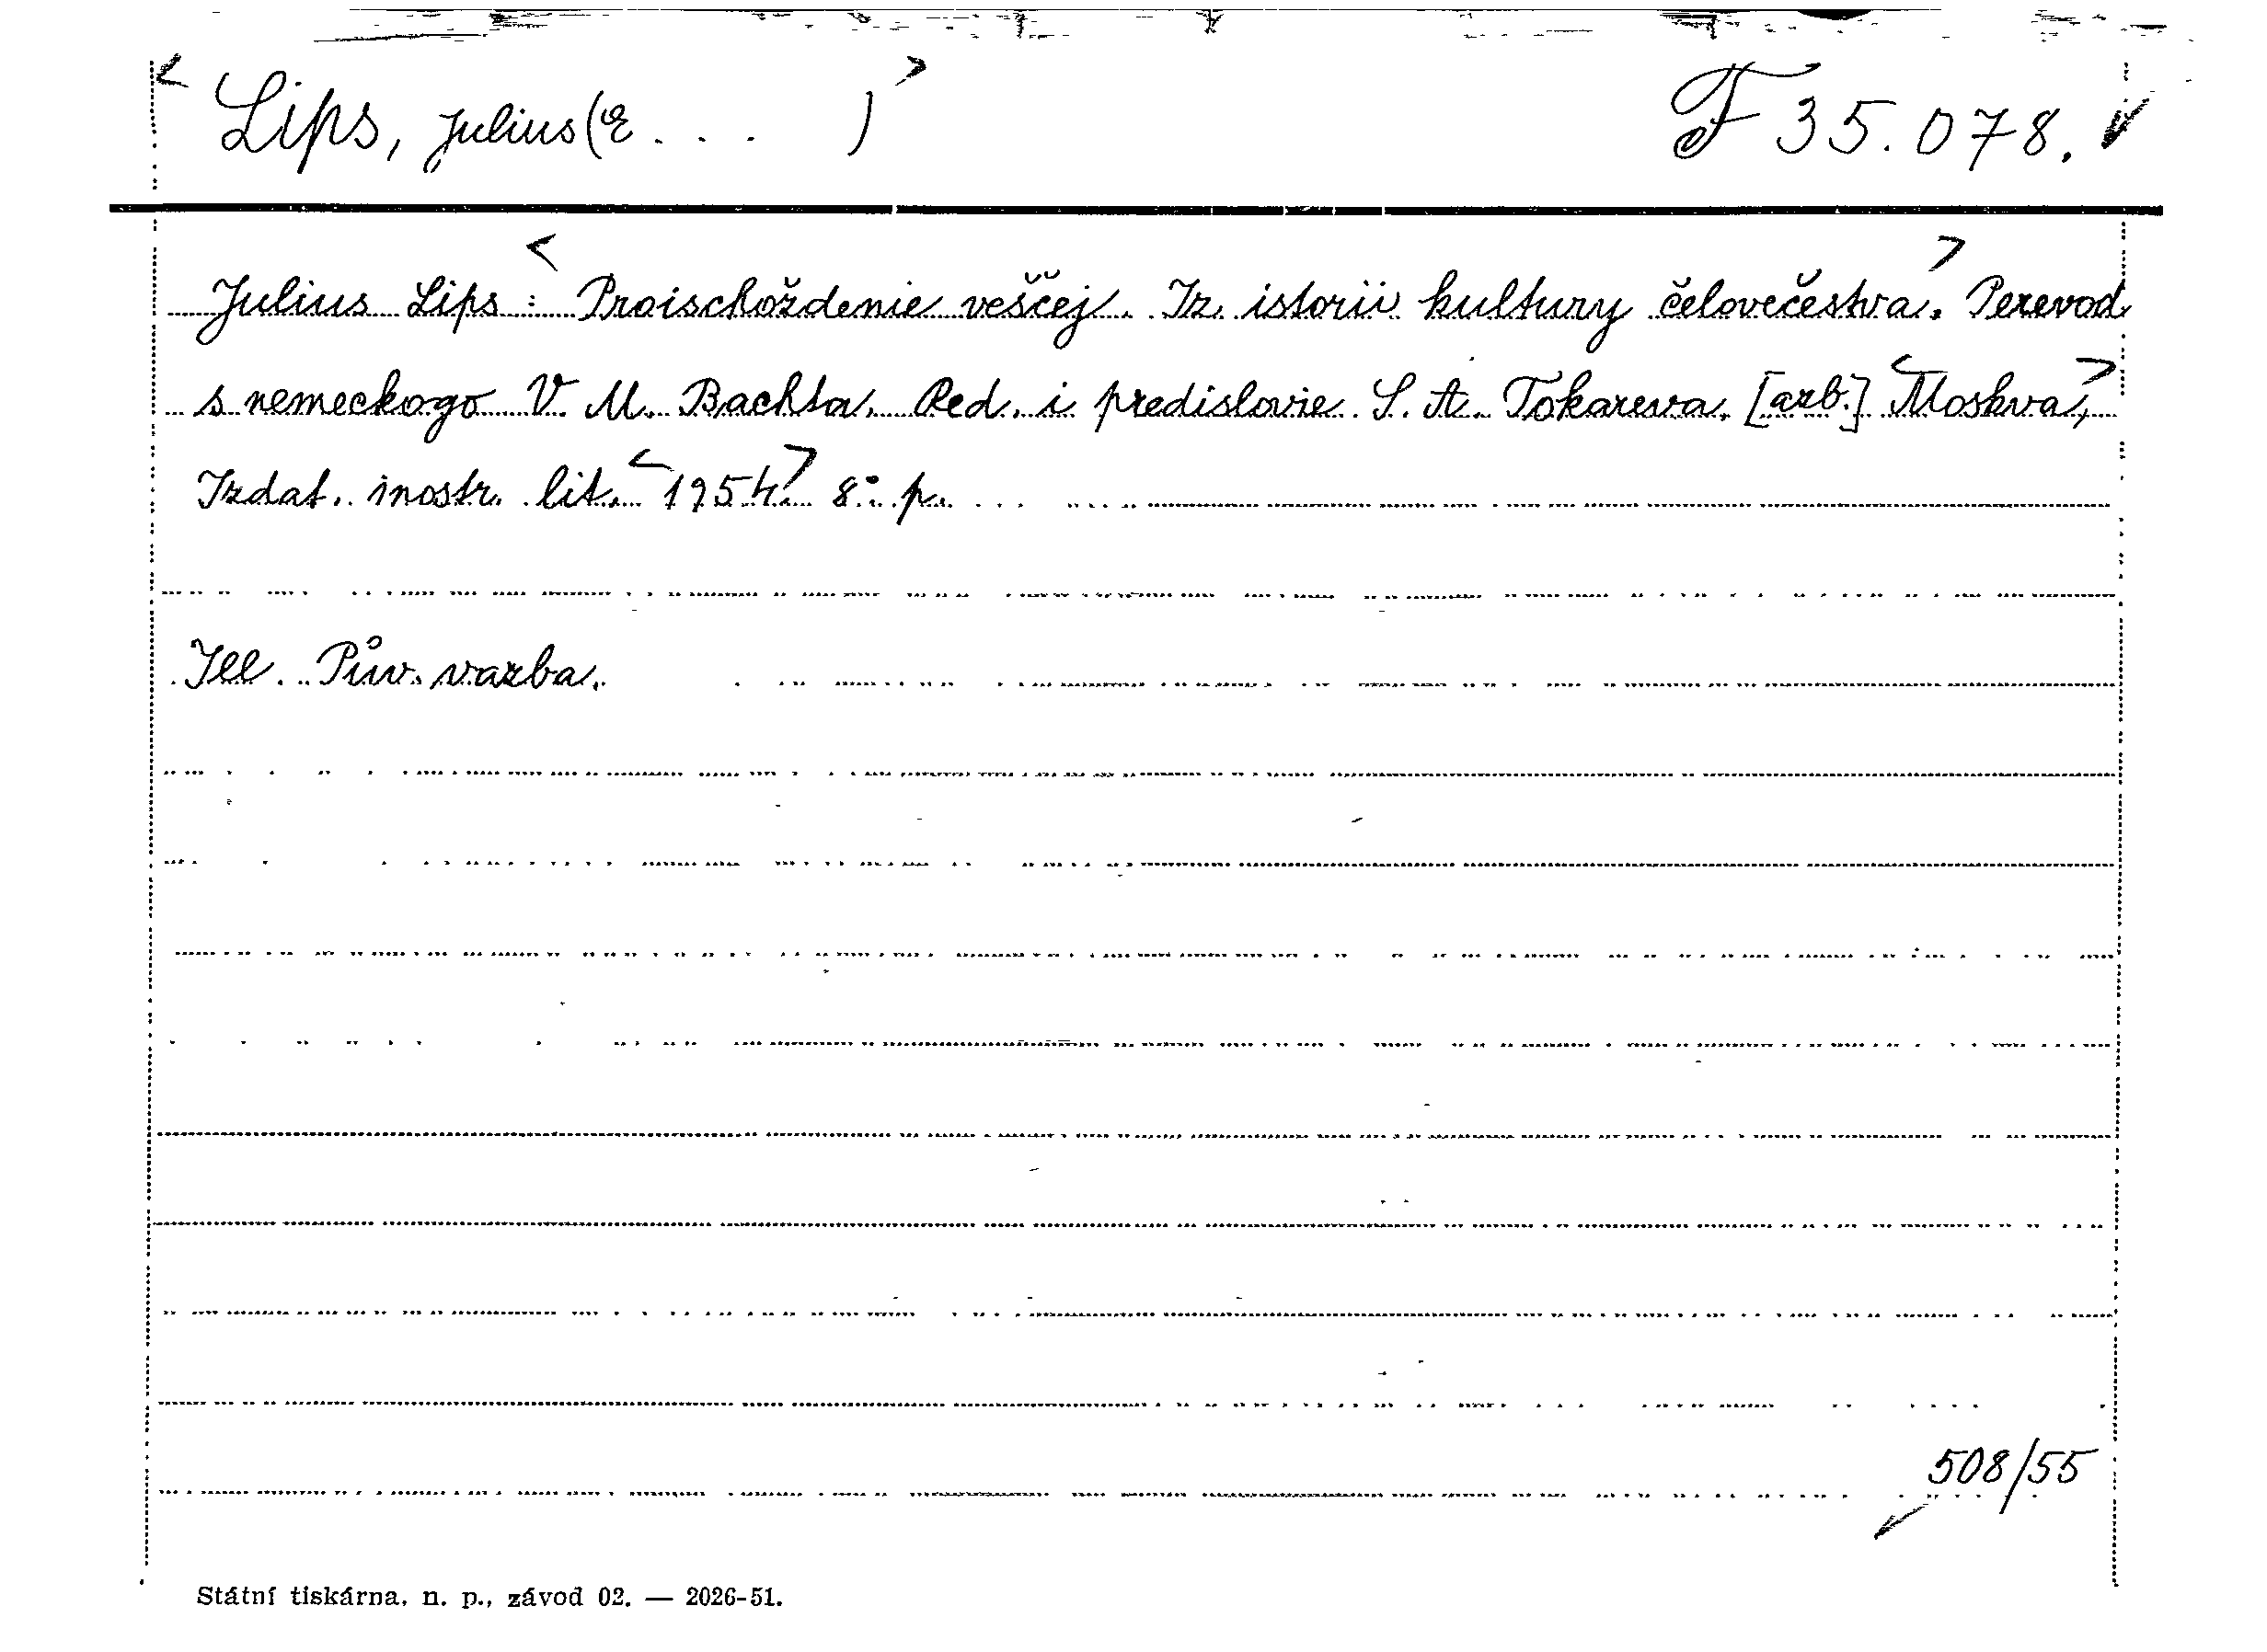 < Lips, Julius (E . . . ) > F 35.078.
Julius Lips: < Proischoždenie veščej. Iz istorii kultury čelovečestva. > Perevod
s nemeckogo V. M. Bachta. Red. i predislovie S. A. Tokareva. [azb.] < Moskva, >
Izdat. inostr. lit. < 1954. > 8° p.
Ill. Pův. vazba.
508/55
Státní tiskárna, n. p., závod 02. — 2026-51.